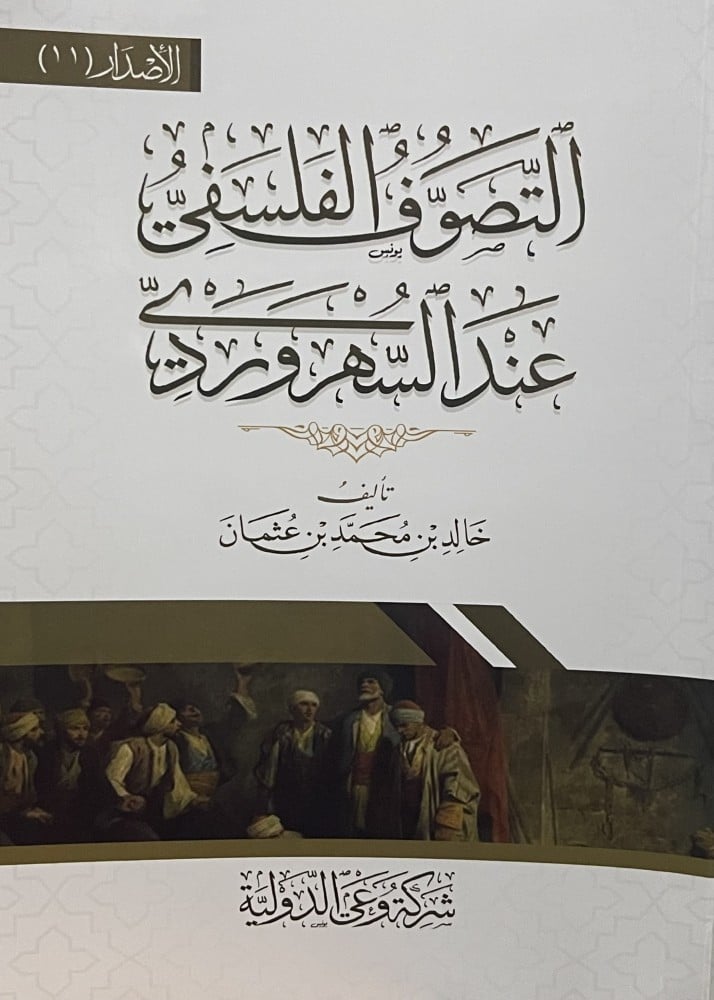 الأصدار (١١)
التَّصَوُّفُ الفَلسَفِيُّ
يونس
عِندَ السُّهرَوَردِيِّ
تأليفُ
خَالِدِ بنِ مُحَمَّدِ بنِ عُثمَانَ
شَركةُ وَعي الدَّوليَّة
يونس